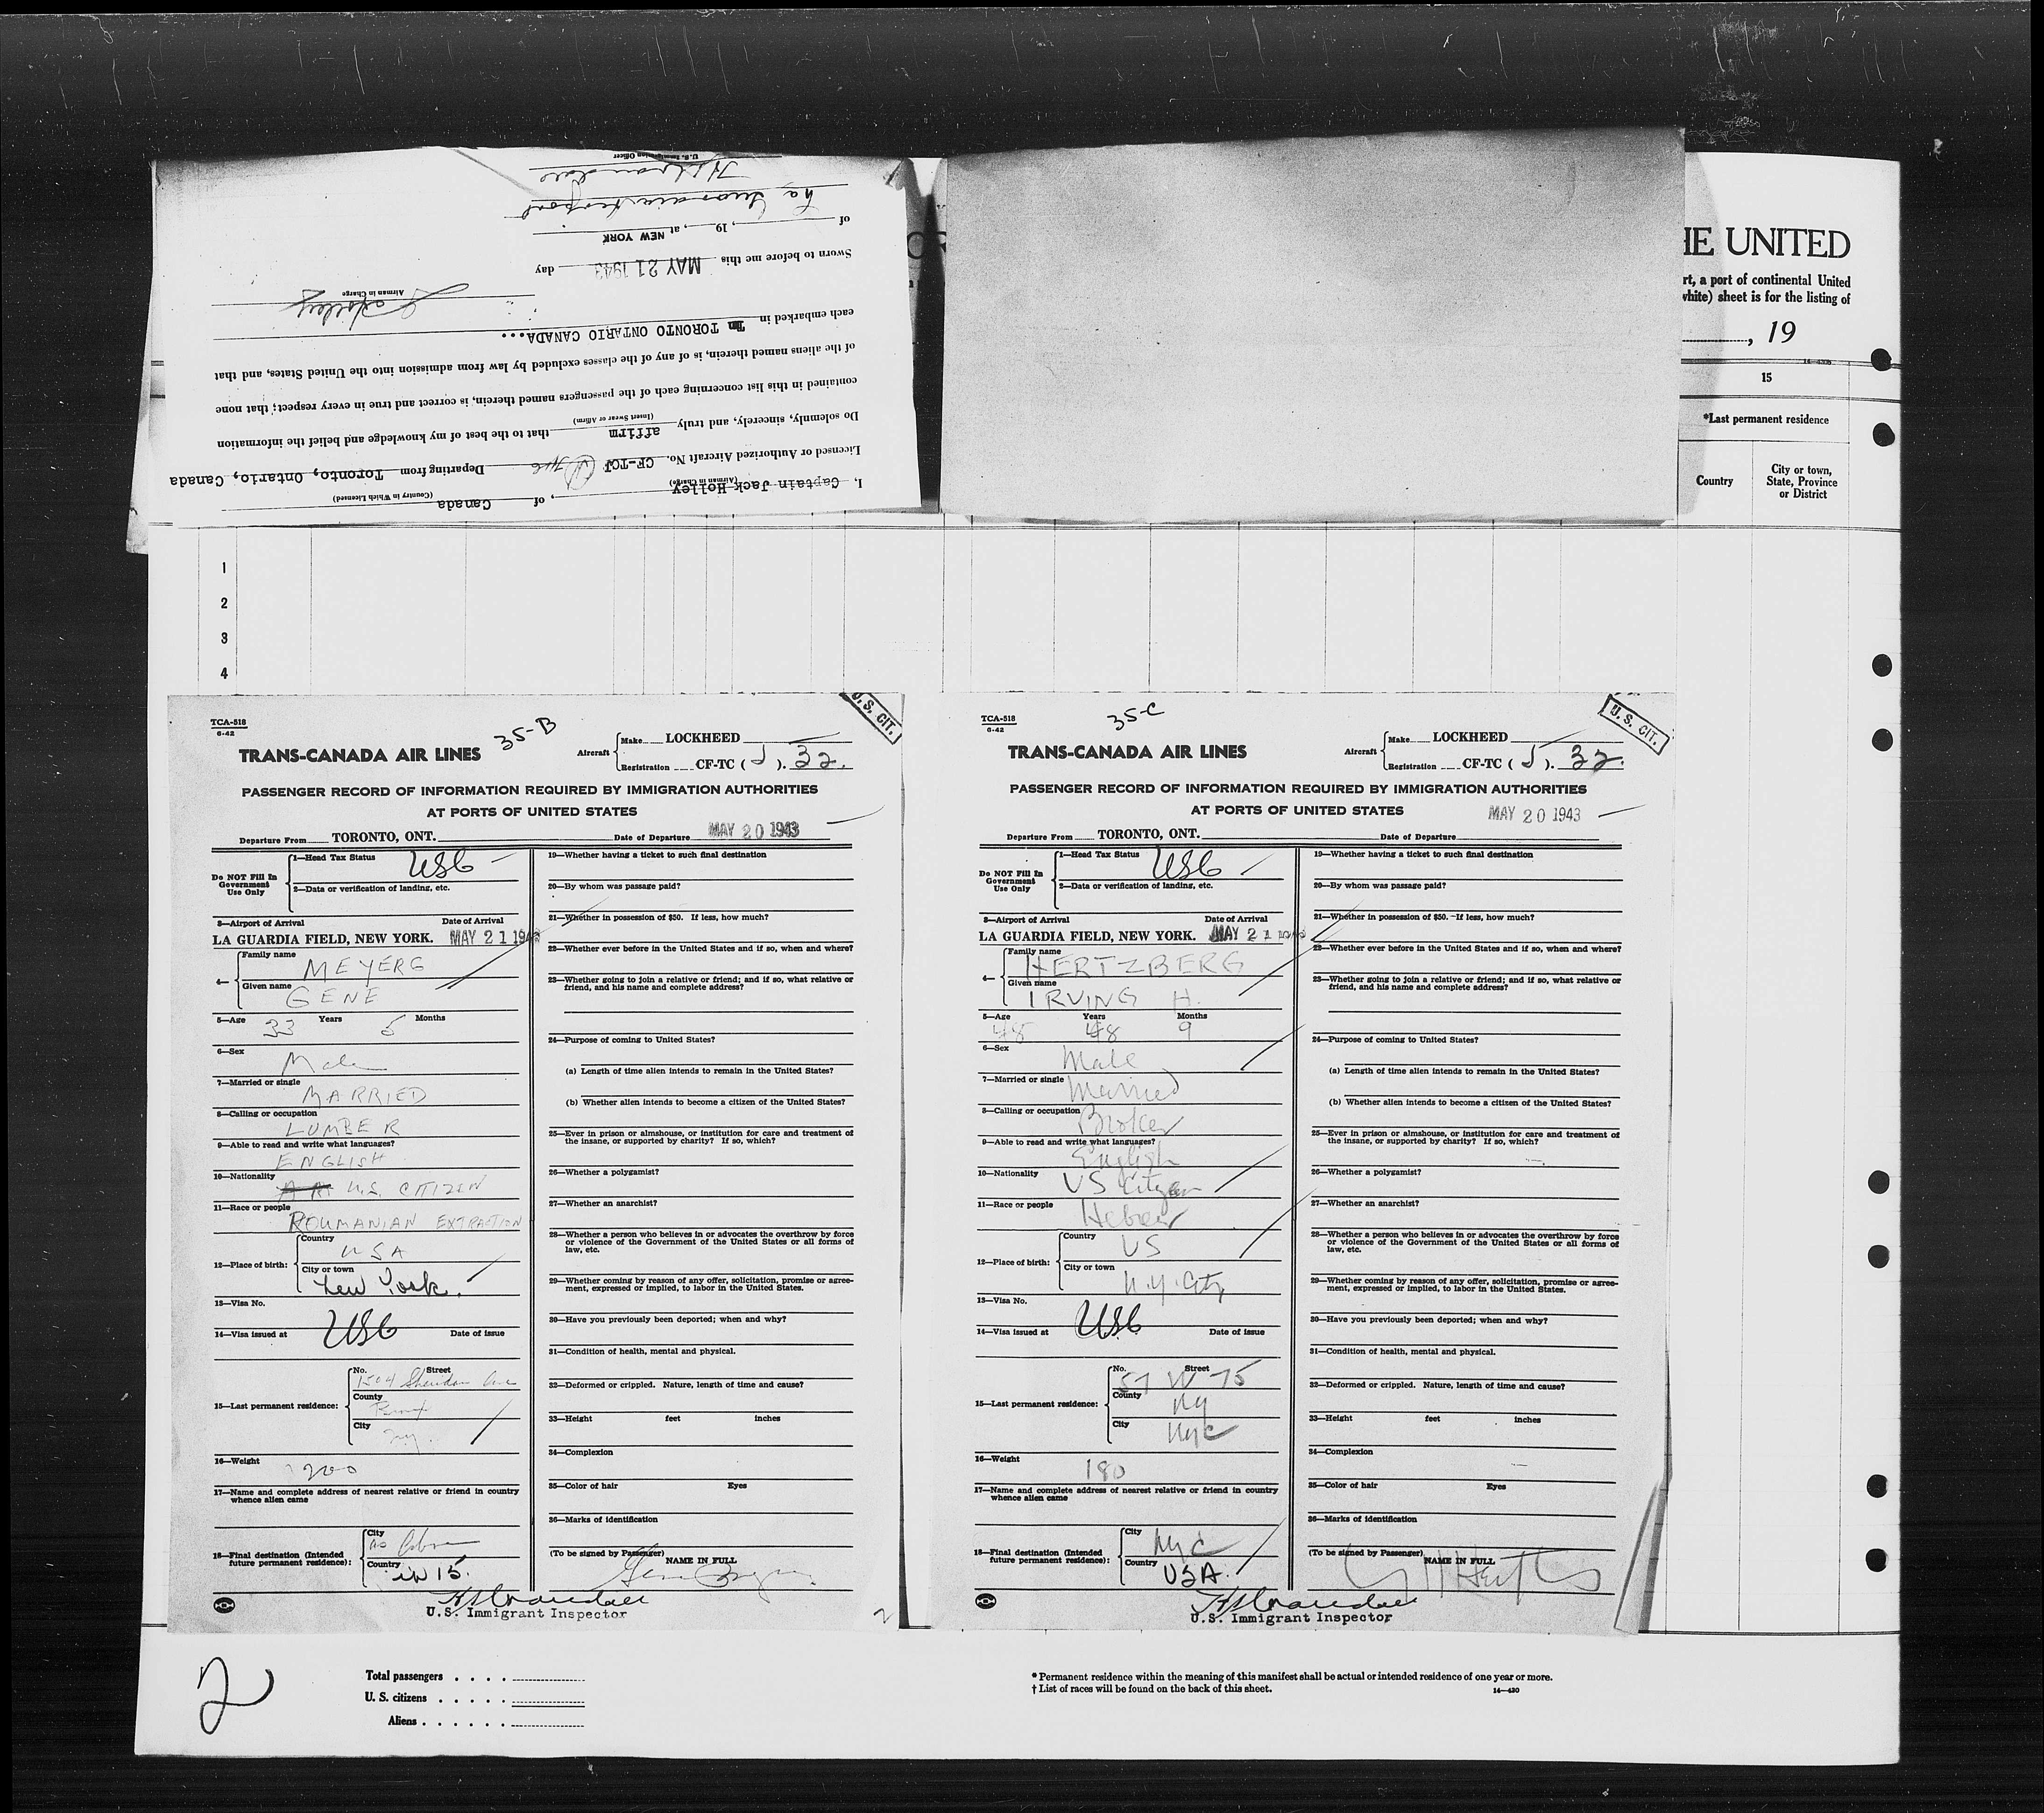 I, Captain Jack Holley, of Canada
(Airman in Charge) (Country in Which Licensed)
Licensed or Authorized Aircraft No. CF-TCJ Departing from Toronto, Ontario, Canada
Do solemnly, sincerely, and truly affirm that to the best of my knowledge and belief the information
(Insert Swear or Affirm)
contained in this list concerning each of the passengers named therein, is correct and true in every respect; that none
of the aliens named therein, is of any of the classes excluded by law from admission into the United States, and that
each embarked in TORONTO ONTARIO CANADA...
Airman in Charge
Sworn to before me this MAY 21 1943 day
of , 19 , at NEW YORK
U. S. Immigration Officer
HE UNITED
rt, a port of continental United
white) sheet is for the listing of
, 19
15
*Last permanent residence
Country
City or town,
State, Province
or District
1
2
3
4
TCA-518
6-42
35-B
U. S. CIT.
TRANS-CANADA AIR LINES
Aircraft
Make LOCKHEED
Registration CF-TC ( J ). 32.
PASSENGER RECORD OF INFORMATION REQUIRED BY IMMIGRATION AUTHORITIES
AT PORTS OF UNITED STATES
Departure From TORONTO, ONT. Date of Departure MAY 20 1943
Do NOT Fill In
Government
Use Only
1—Head Tax Status USC
2—Data or verification of landing, etc.
3—Airport of Arrival Date of Arrival
LA GUARDIA FIELD, NEW YORK. MAY 21 1943
4—
Family name
MEYERS
Given name
GENE
5—Age 33 Years 5 Months
6—Sex
Male
7—Married or single
MARRIED
8—Calling or occupation
LUMBER
9—Able to read and write what languages?
ENGLISH
10—Nationality
U.S. CITIZEN
11—Race or people
ROUMANIAN EXTRACTION
12—Place of birth:
Country
USA
City or town
New York.
13—Visa No.
USC
14—Visa issued at Date of issue
15—Last permanent residence:
No. Street
1504 Sheridan Ave
County
Bronx
City
N.Y.
16—Weight
200
17—Name and complete address of nearest relative or friend in country
whence alien came
18—Final destination (Intended
future permanent residence):
City
as above
Country
in 15.
19—Whether having a ticket to such final destination
20—By whom was passage paid?
21—Whether in possession of $50. If less, how much?
22—Whether ever before in the United States and if so, when and where?
23—Whether going to join a relative or friend; and if so, what relative or
friend, and his name and complete address?
24—Purpose of coming to United States?
(a) Length of time alien intends to remain in the United States?
(b) Whether alien intends to become a citizen of the United States?
25—Ever in prison or almshouse, or institution for care and treatment of
the insane, or supported by charity? If so, which?
26—Whether a polygamist?
27—Whether an anarchist?
28—Whether a person who believes in or advocates the overthrow by force
or violence of the Government of the United States or all forms of
law, etc.
29—Whether coming by reason of any offer, solicitation, promise or agree-
ment, expressed or implied, to labor in the United States.
30—Have you previously been deported; when and why?
31—Condition of health, mental and physical.
32—Deformed or crippled. Nature, length of time and cause?
33—Height feet inches
34—Complexion
35—Color of hair Eyes
36—Marks of identification
(To be signed by Passenger) NAME IN FULL
U.S. Immigrant Inspector
2
TCA-518
6-42
35-C
U. S. CIT.
TRANS-CANADA AIR LINES
Aircraft
Make LOCKHEED
Registration CF-TC ( J ). 32.
PASSENGER RECORD OF INFORMATION REQUIRED BY IMMIGRATION AUTHORITIES
AT PORTS OF UNITED STATES
MAY 20 1943
Departure From TORONTO, ONT. Date of Departure
Do NOT Fill In
Government
Use Only
1—Head Tax Status USC
2—Data or verification of landing, etc.
3—Airport of Arrival Date of Arrival
LA GUARDIA FIELD, NEW YORK. MAY 21 1943
4—
Family name
HERTZBERG
Given name
IRVING H.
5—Age Years Months
48 48 9
6—Sex
Male
7—Married or single
Married
8—Calling or occupation
Broker
9—Able to read and write what languages?
English
10—Nationality
US Citizen
11—Race or people
Hebrew
12—Place of birth:
Country
US
City or town
N.Y. City
13—Visa No.
USC
14—Visa issued at Date of issue
15—Last permanent residence:
No. Street
57 W 75
County
NY
City
NYC
16—Weight
180
17—Name and complete address of nearest relative or friend in country
whence alien came
18—Final destination (Intended
future permanent residence):
City
NYC
Country
USA.
19—Whether having a ticket to such final destination
20—By whom was passage paid?
21—Whether in possession of $50. If less, how much?
22—Whether ever before in the United States and if so, when and where?
23—Whether going to join a relative or friend; and if so, what relative or
friend, and his name and complete address?
24—Purpose of coming to United States?
(a) Length of time alien intends to remain in the United States?
(b) Whether alien intends to become a citizen of the United States?
25—Ever in prison or almshouse, or institution for care and treatment of
the insane, or supported by charity? If so, which?
26—Whether a polygamist?
27—Whether an anarchist?
28—Whether a person who believes in or advocates the overthrow by force
or violence of the Government of the United States or all forms of
law, etc.
29—Whether coming by reason of any offer, solicitation, promise or agree-
ment, expressed or implied, to labor in the United States.
30—Have you previously been deported; when and why?
31—Condition of health, mental and physical.
32—Deformed or crippled. Nature, length of time and cause?
33—Height feet inches
34—Complexion
35—Color of hair Eyes
36—Marks of identification
(To be signed by Passenger) NAME IN FULL
U.S. Immigrant Inspector
2
Total passengers
U. S. citizens
Aliens
* Permanent residence within the meaning of this manifest shall be actual or intended residence of one year or more.
† List of races will be found on the back of this sheet.
14—430